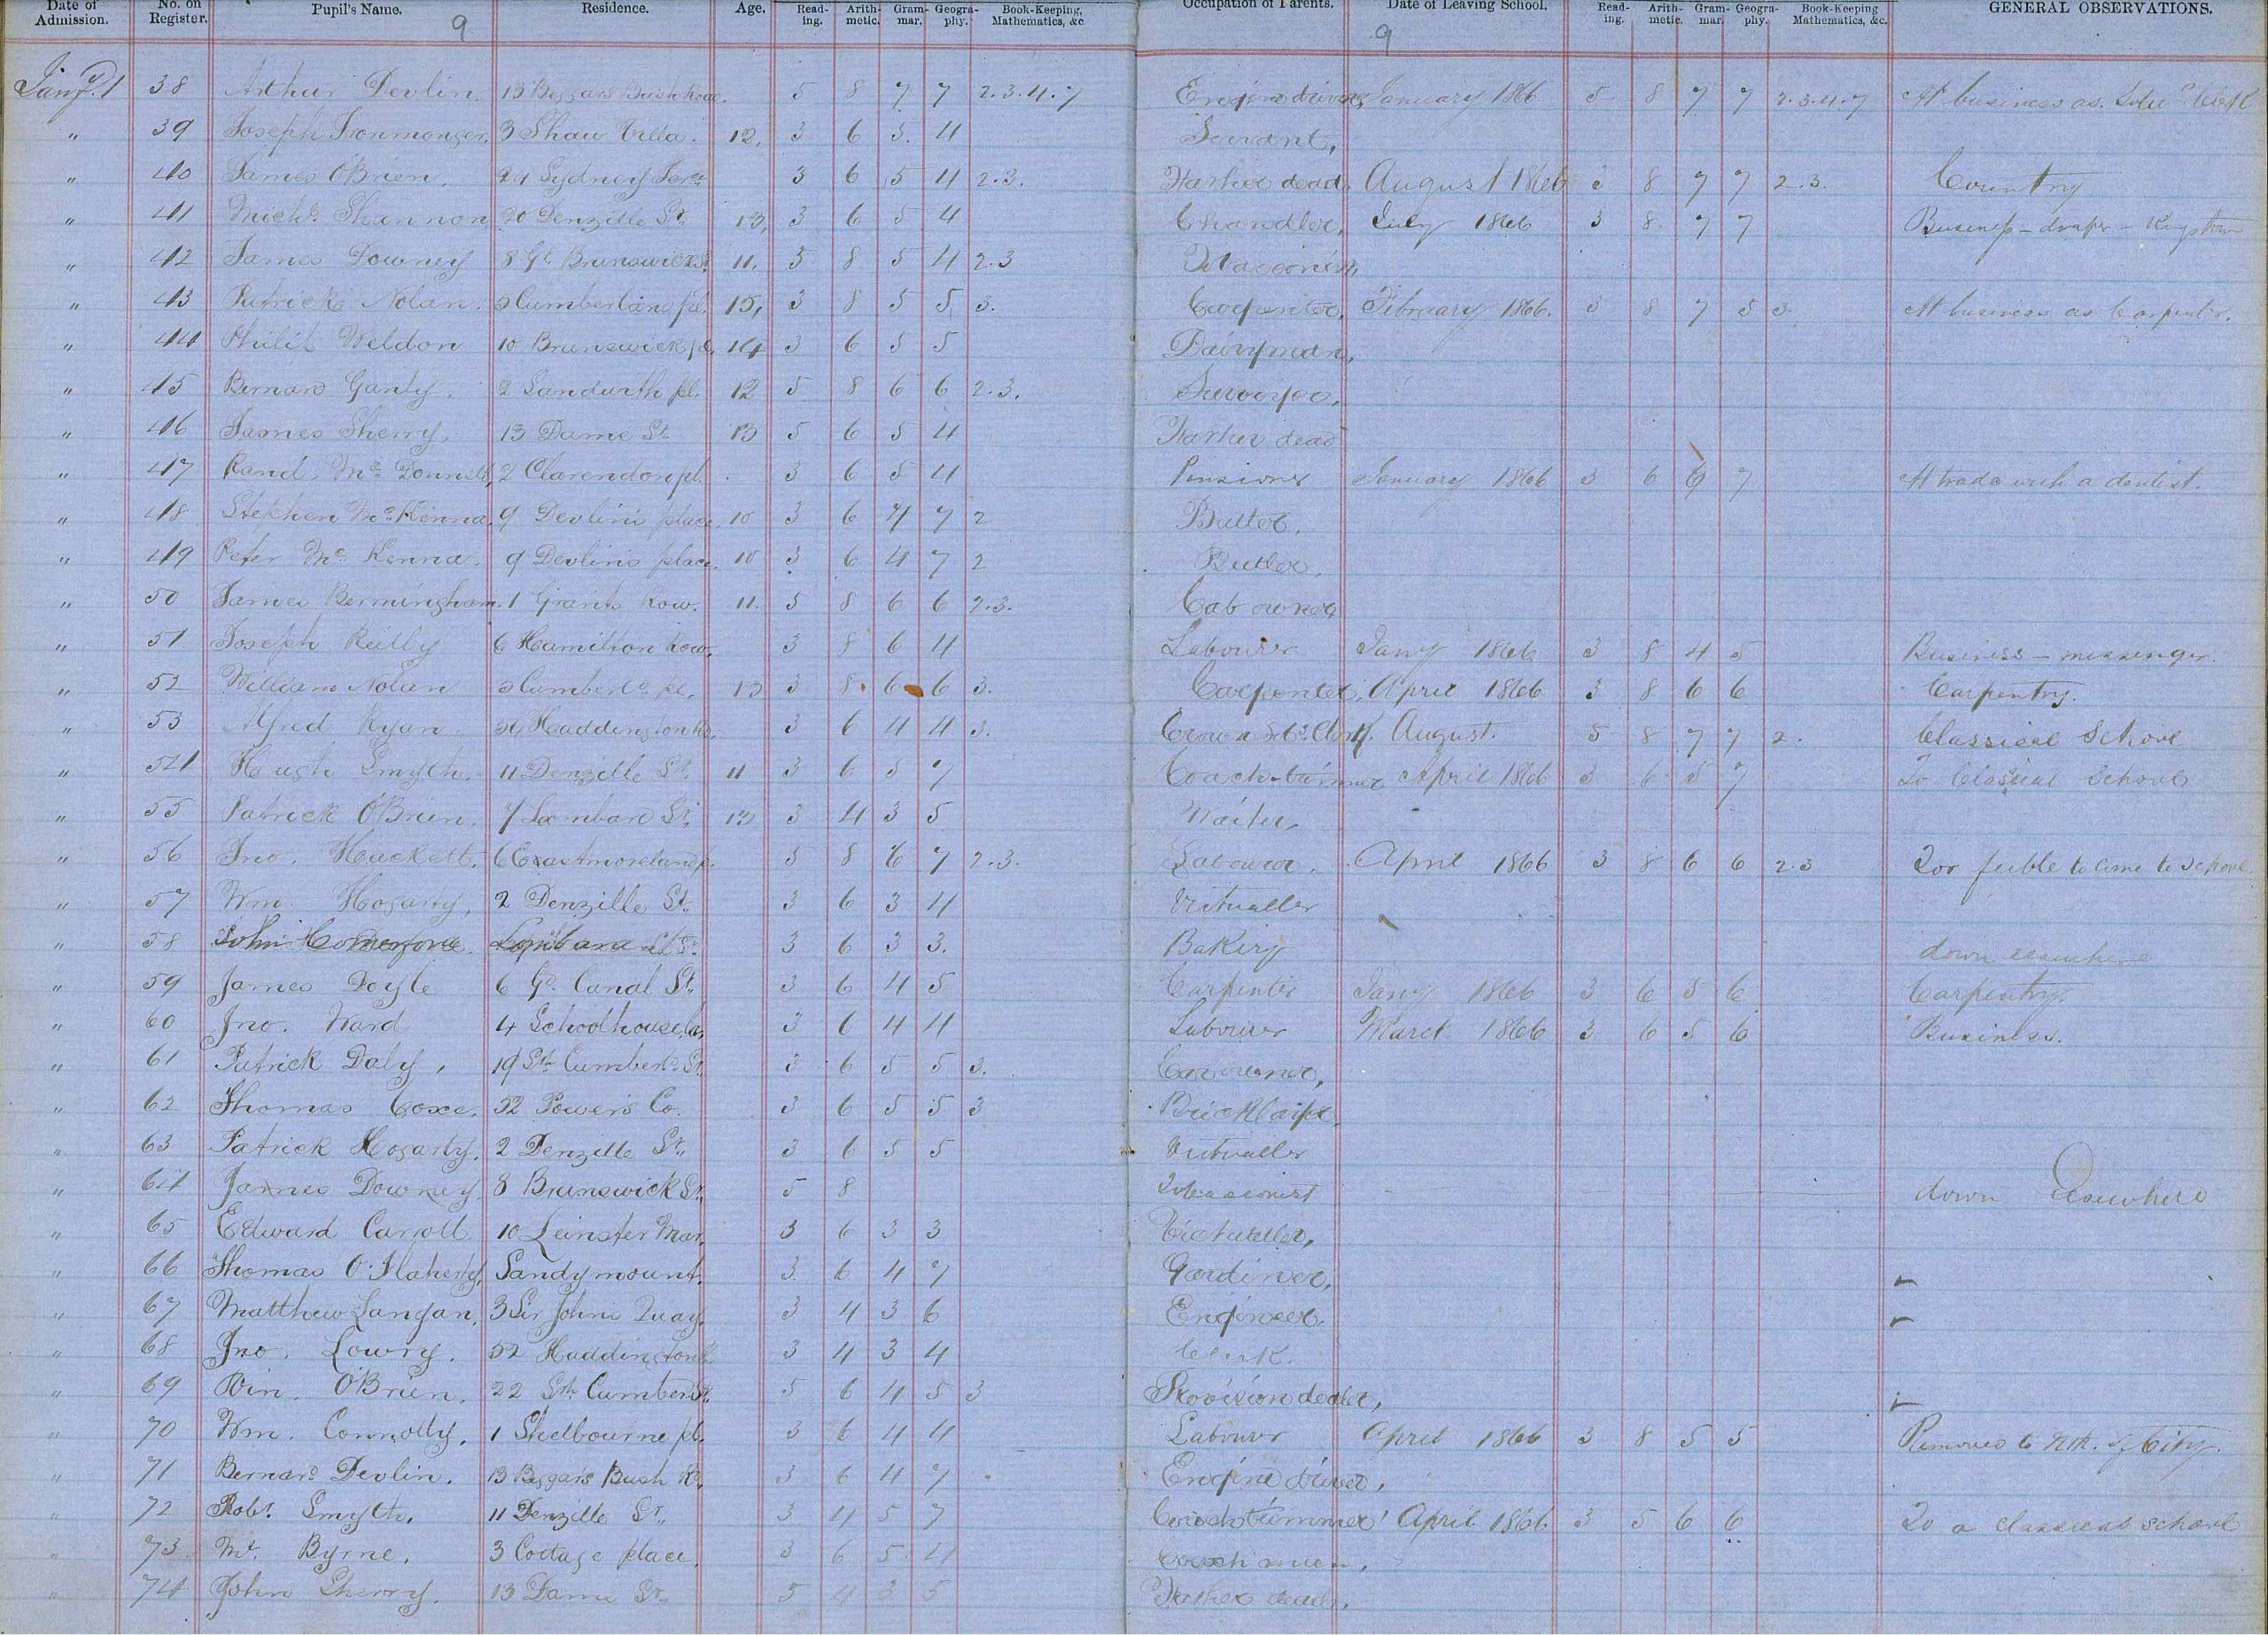 Date of Admission. No. on Register. Pupil's Name. Residence. Age. Read-ing. Arith-metic. Gram-mar. Geogra-phy. Book-Keeping, Mathematics, &c. Occupation of Parents. Date of Leaving School. Read-ing. Arith-metic. Gram-mar. Geogra-phy. Book-Keeping Mathematics, &c. GENERAL OBSERVATIONS.
9 9
Jany. 1 38 Arthur Devlin. 13 Beggars Bush Road. 5 8 7 7 2.3.4.7 Engine driver, January 1866 5 8 7 7 2.3.4.7 At business as Clerk
" 39 Joseph Ironmonger. 3 Shaw Villa. 12. 3 6 5. 4 Servant,
" 40 James O'Brien. 24 Sydney Terc. 3 6 5 4 2.3. Father dead, August 1866 3 8 7 7 2.3. Country
" 41 Michl. Shannon 20 Denzille St. 13, 3 6 5 4 Chandler, July 1866 3 8 7 7 Business - draper - Kingstown
" 42 James Downey 8 Gt. Brunswick St. 11. 3 8 5 4 2.3 Tobacconist,
" 43 Patrick Nolan. 5 Cumberland pl. 15, 3 8 5 5 3. Carpenter, February 1866. 3 8 7 5 3. At business as Carpenter.
" 44 Philip Weldon 10 Brunswick pl, 14 3 6 5 5 Dairyman,
" 45 Bernard Ganly. 2 Sandwith pl. 12 5 8 6 6 2.3. Surveyor,
" 46 James Sherry. 13 Dame St. 13 5 6 5 4 Father dead
" 47 Rand. Mc Donnell, 2 Clarendon pl. 3 6 5 4 Pensioner January 1866 3 6 6 7 At trade with a dentist.
" 48 Stephen McKenna, 9 Devlin's place. 10 3 6 4 7 2 Butler,
" 49 Peter Mc Kenna. 9 Devlin's place. 10 3 6 4 7 2 Butler,
" 50 James Bermingham. 1 Grants Row. 11. 5 8 6 6 2.3. Cab owner,
" 51 Joseph Reilly 6 Hamilton Row, 3 8 6 4 Labourer Jany 1866 3 8 4 5 Business - messenger.
" 52 William Nolan 5 Cumberld. pl, 13 3 8 6 6 3. Carpenter, April 1866 3 8 6 6 Carpentry.
" 53 Alfred Ryan Haddington Rd. 3 6 4 4 3. Clerk. August. 5 8 7 7 2. Classical School
" 54 Hugh Smyth. 11 Denzille St. 11 3 6 5 7 Coach-trimmer April 1866 3 6 5 7 To Classical School
" 55 Patrick O'Brien. 7 Lombard St. 13 3 4 3 5 Waiter,
" 56 Jno. Hackett. 6 Erastmoreland p. 5 8 6 7 2.3. Labourer. April 1866 3 8 6 6 2.3 Too feeble to come to School.
" 57 Wm. Hogarty, 2 Denzille St. 3 6 3 4 Victualler
" 58 John Comerford. Lombard St. 3 6 3 3. Bakery down elsewhere
" 59 James Doyle 6 Gd. Canal St. 3 6 4 5 Carpenter Jany 1866 3 6 5 6 Carpentry.
" 60 Jno. Ward 4 Schoolhouse la, 3 6 4 4 Labourer March 1866 3 6 5 6 Business.
" 61 Patrick Daly, 19 Sth. Cumberd. St. 3 6 5 5 3. Car owner,
" 62 Thomas Coxe. 32 Power's Co. 3 6 5 5 3 Bricklayer,
" 63 Patrick Hogarty. 2 Denzille St. 3 6 5 5 Victualler
" 64 James Downey 8 Brunswick St. 5 8 Tobacconist down Elsewhere
" 65 Edward Carroll 10 Leinster Mar. 3 6 3 3 Victualler,
" 66 Thomas O'Flaherty, Sandymount. 3 6 4 7 Gardiner,
" 67 Matthew Langan, 3 Sir Johns Quay. 3 4 3 6 Engineer.
" 68 Jno. Lowry. 52 Haddington 3 4 3 4 Clerk.
" 69 Win. O'Brien. 22 Sth. Cumber St. 5 6 4 5 3 Provision dealer,
" 70 Wm. Connolly. 1 Shelbourne pl. 3 6 4 4 Labourer April 1866 3 8 5 5 Removed to Nth. of City.
" 71 Bernard Devlin. 13 Beggar's Bush Rd. 3 6 4 7 Engine driver,
" 72 Robt. Smyth. 11 Denzille St. 3 4 5 7 Coach trimmer April 1866. 3 5 6 6 To a classical school
" 73 Mt. Byrne. 3 Cottage place. 3 6 5 4 Coachman,
" 74 John Sherry. 13 Dame St. 5 4 3 5 Father dead,